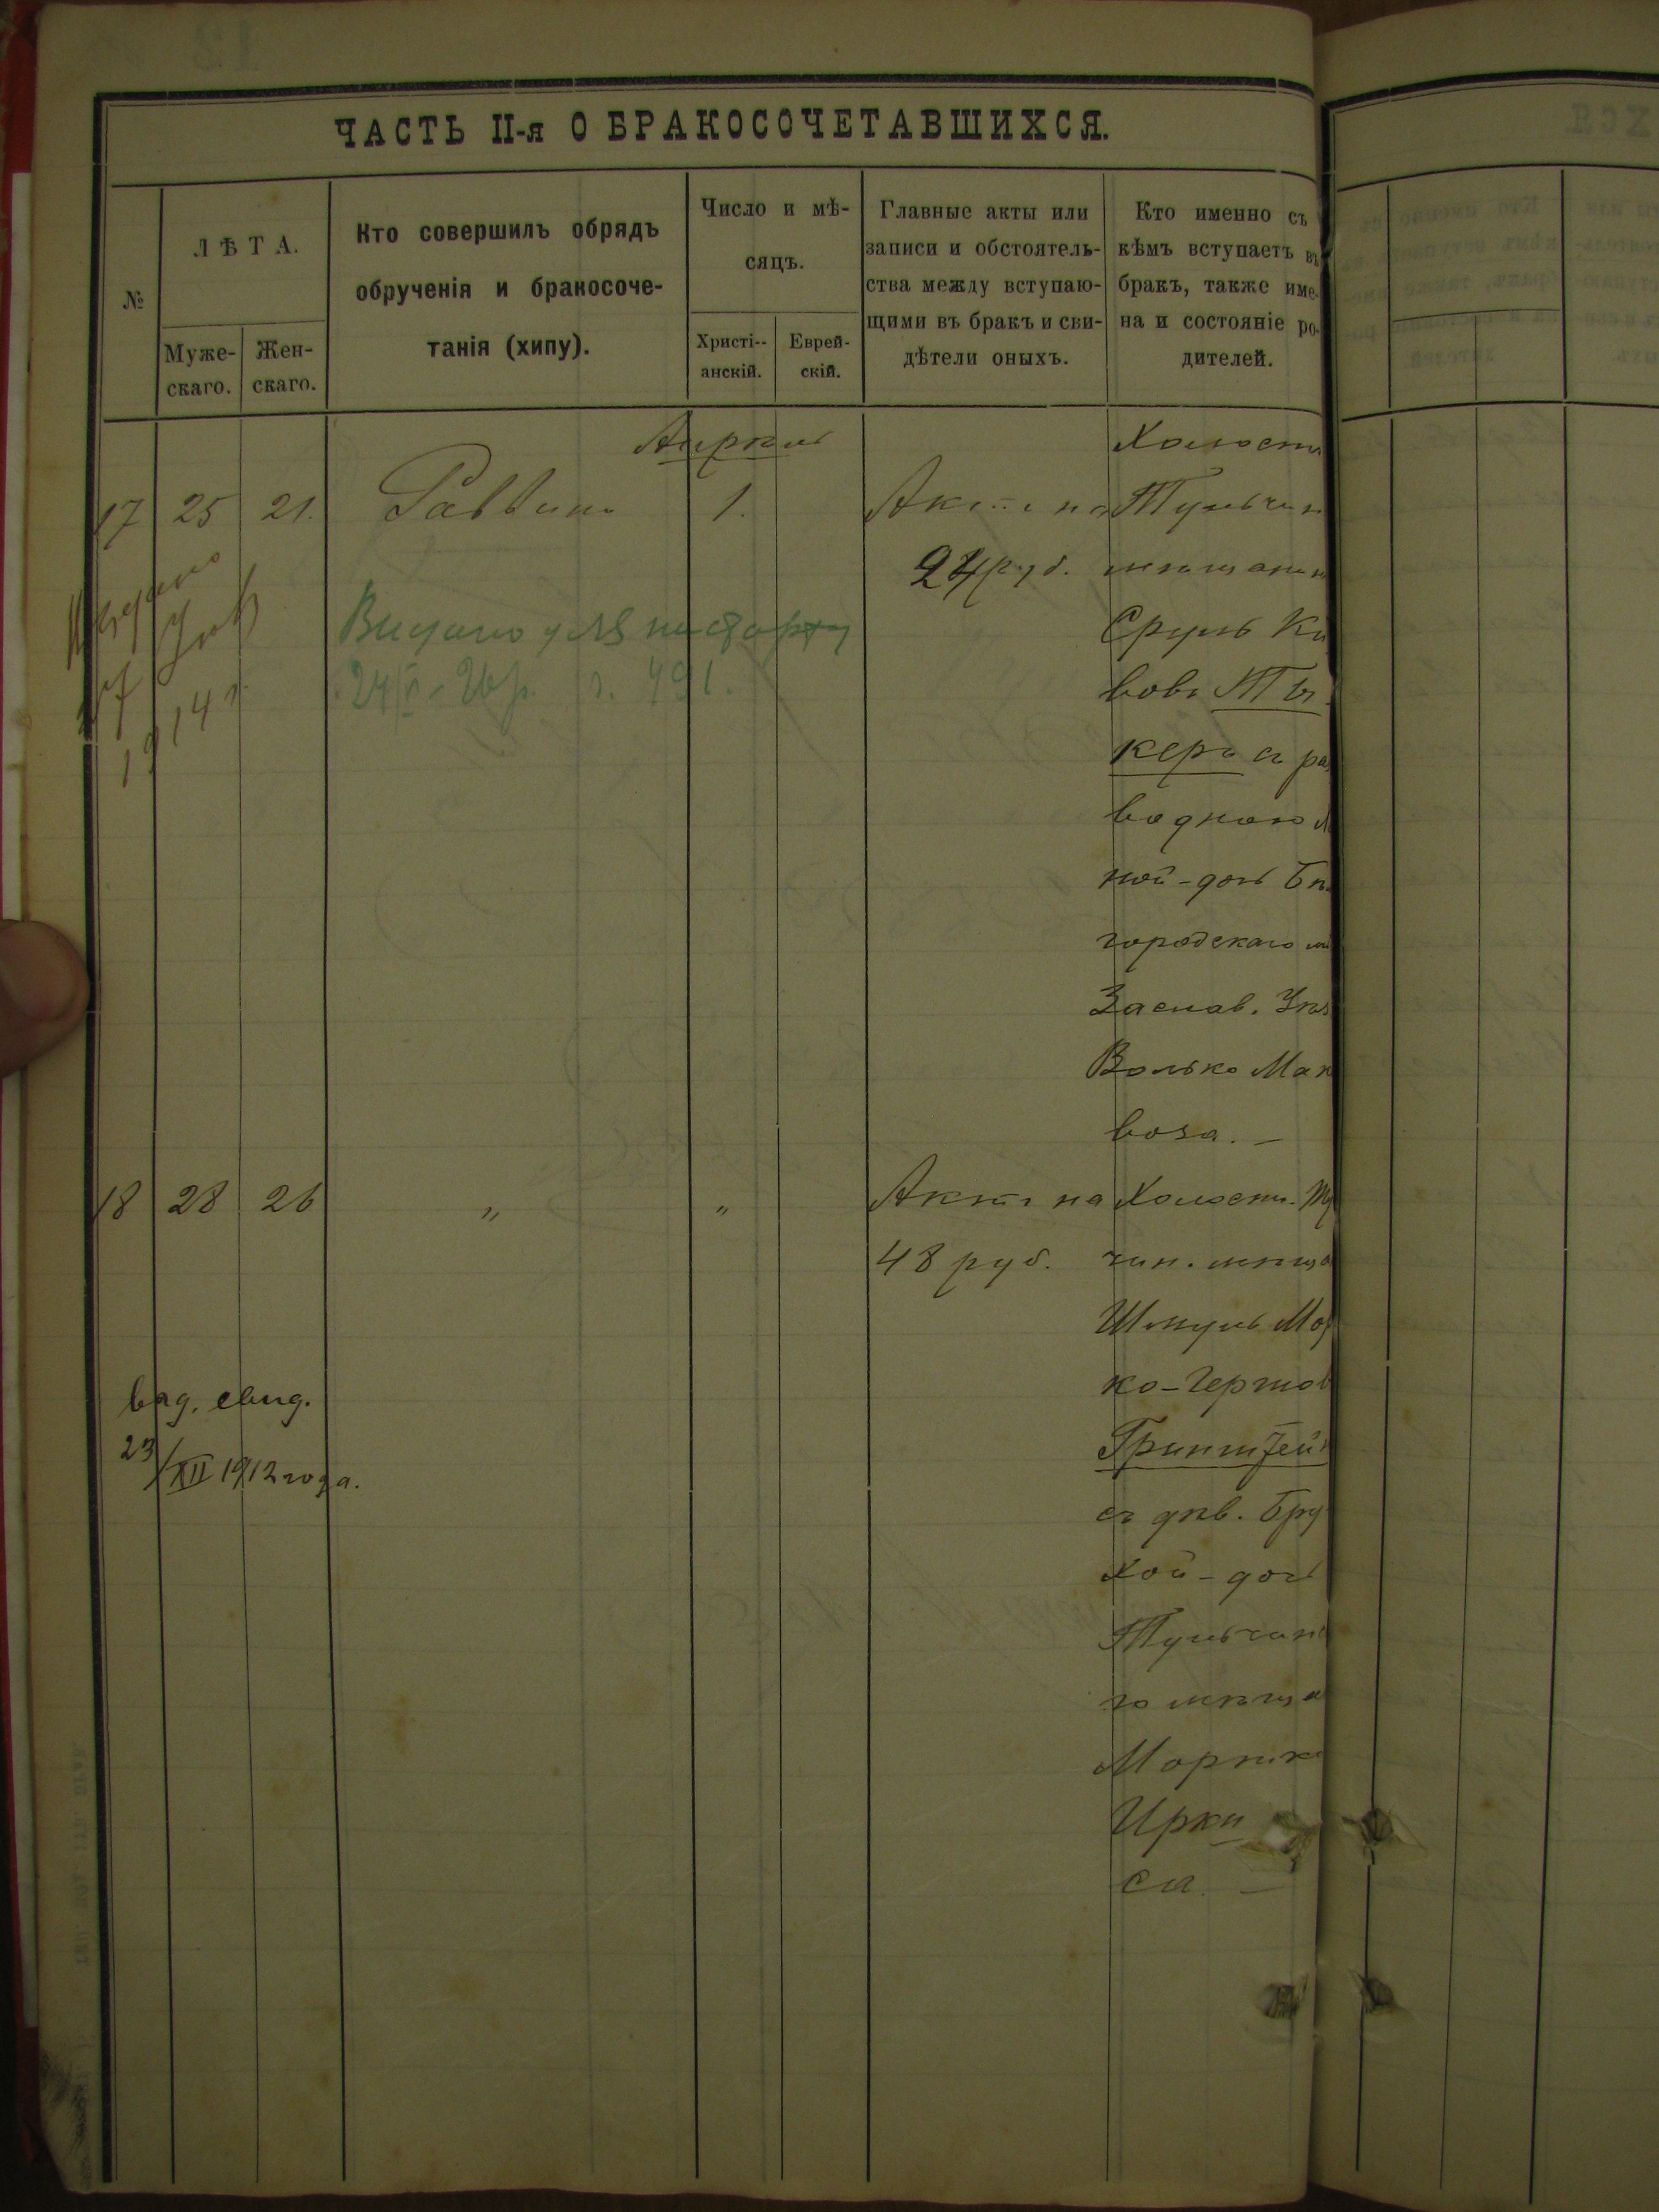 ЧАСТЬ II-я О БРАКОСОЧЕТАВШИХСЯ.
№
ЛѢТА.
Муже-
скаго.
Жен-
скаго.
Кто совершилъ обрядъ
обрученія и бракосоче-
танія (хипу).
Число и мѣ-
сяцъ.
Христі-
анскій.
Еврей-
скій.
Главные акты или
записи и обстоятель-
ства между вступаю-
щими въ бракъ и сви-
дѣтели оныхъ.
Кто именно съ
кѣмъ вступаетъ въ
бракъ, также име-
на и состояніе ро-
дителей.
Апрель
17 25 21. Раввинъ 1. Актъ на
24 руб.
Холост
Тульчин
мѣщанин
Сруль
вовъ
керъ съ раз
водною
ной-дочь
городскаго
Заслав. Уѣз
Волько
воза. —
Видано для паспорту
1914 г.
18 28 26 " " Актъ на
48 руб.
Холост. Ту
чин. мѣща
Шмуль Мор
ко-Гершов
Гринштейн
съ дѣв. Бру
хой-дочь
Тульчинс
го мѣща
Мортко
Ирки
са. —
выд. свид.
23/XII 1912 года.